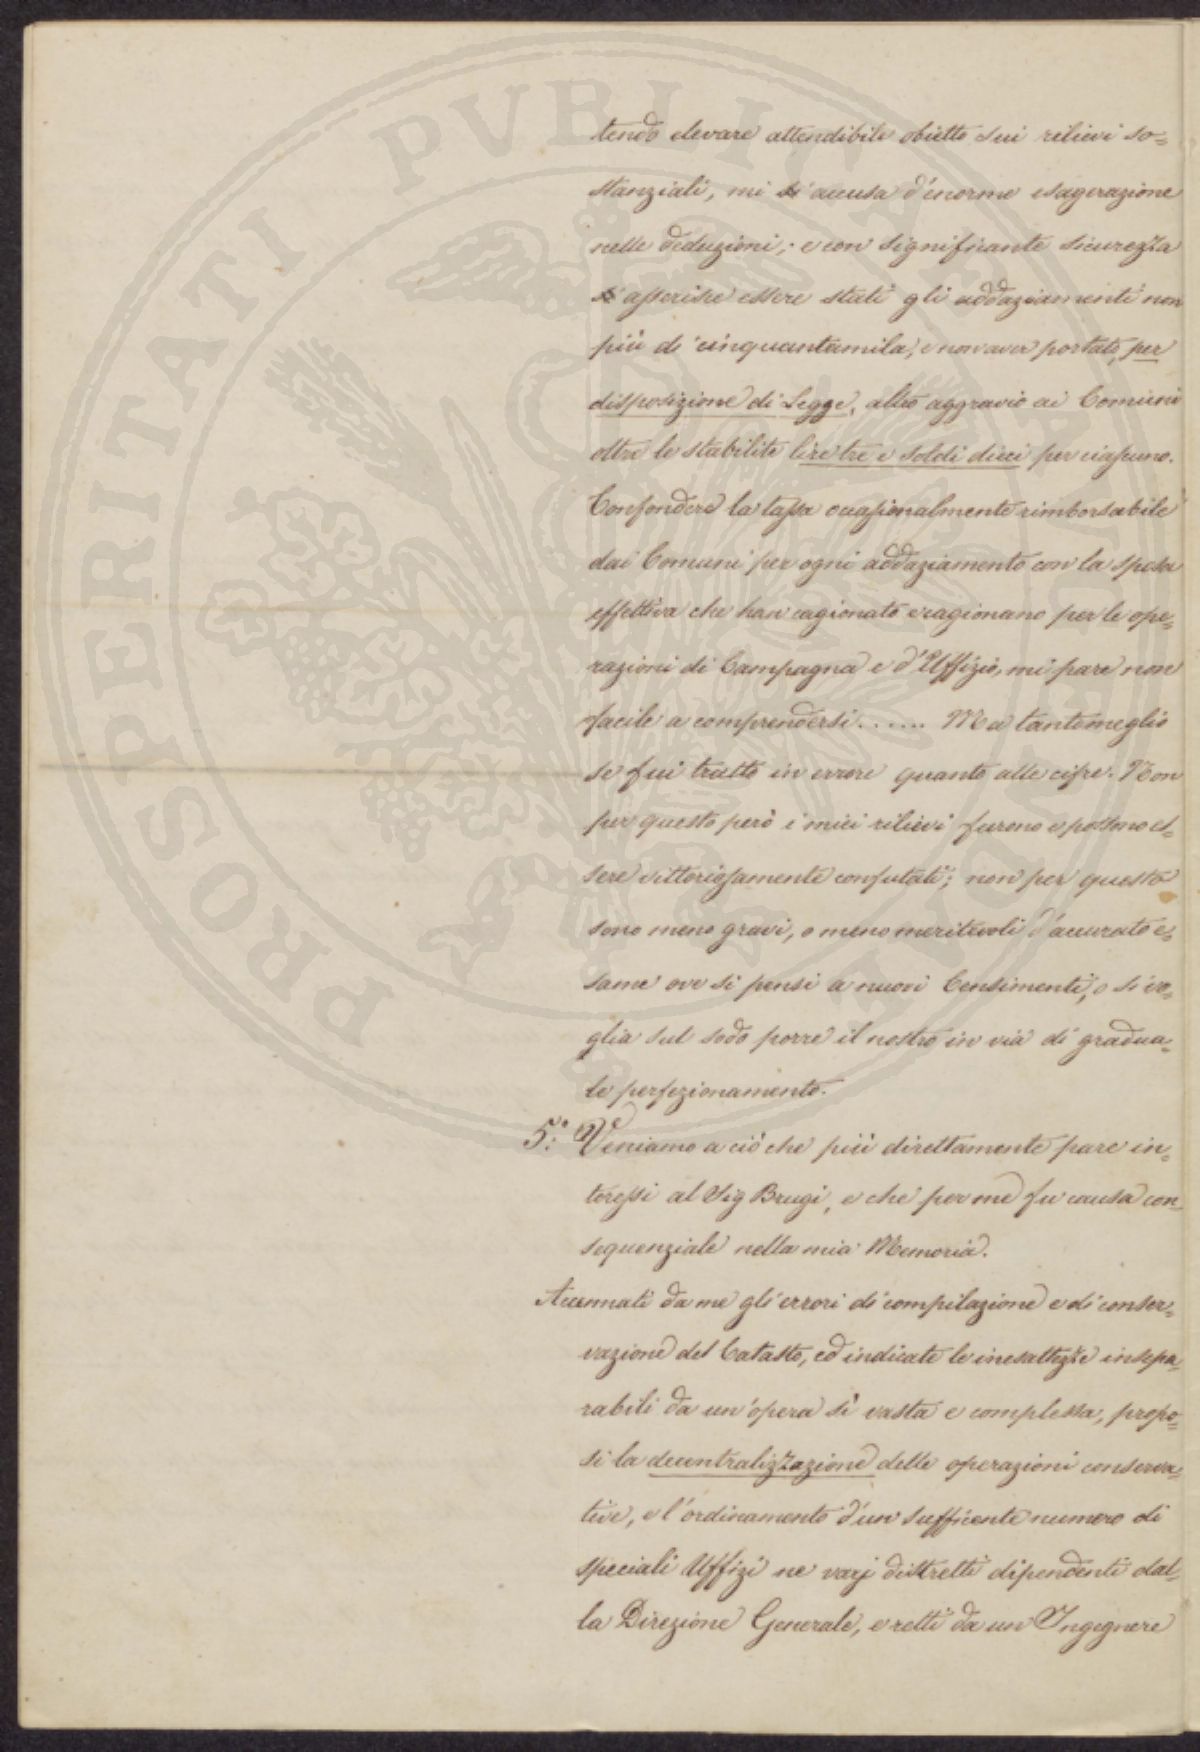 tendo elevare attendibile obietto sui rilievi so=
stanziali, mi si accusa d'enorme esagerazione
nelle deduzioni; e con significante sicurezza
si asserisce essere stati gli addaziamenti non
più di cinquantamila, e non aver portato, per
disposizione di Legge, altro aggravio ai Comuni
oltre le stabilite lire tre e soldi dieci per ciascuno.
Confondere la tassa occasionalmente rimborsabile
dai Comuni per ogni addaziamento con la spesa
effettiva che han cagionato e cagionano per le ope=
razioni di Campagna e d'Uffizio, mi pare non
facile a comprendersi...... Ma tanto meglio
se fui tratto in errore quanto alle cifre. Non
per questo però i miei rilievi furono e possono es=
sere vittoriosamente confutati; non per questo
sono meno gravi, o meno meritevoli d'accurato e=
same ove si pensi a nuovi Censimenti, o si vo=
glia sul sodo porre il nostro in via di gradua=
le perfezionamento.
5.° Veniamo a ciò che più direttamente pare in=
teressi al Sig Brugi, e che per me fu causa con=
sequenziale nella mia Memoria.
Accennati da me gli errori di compilazione e di conser=
vazione del Catasto, ed indicate le inesattezze insepa=
rabili da un'opera sì vasta e complessa, propo=
si la decentralizzazione delle operazioni conserva=
tive, e l'ordinamento d'un sufficente numero di
speciali Uffizi ne varj distretti dipendenti dal=
la Direzione Generale, e retti da un Ingegnere
PROSPERITATI PVBLICAE